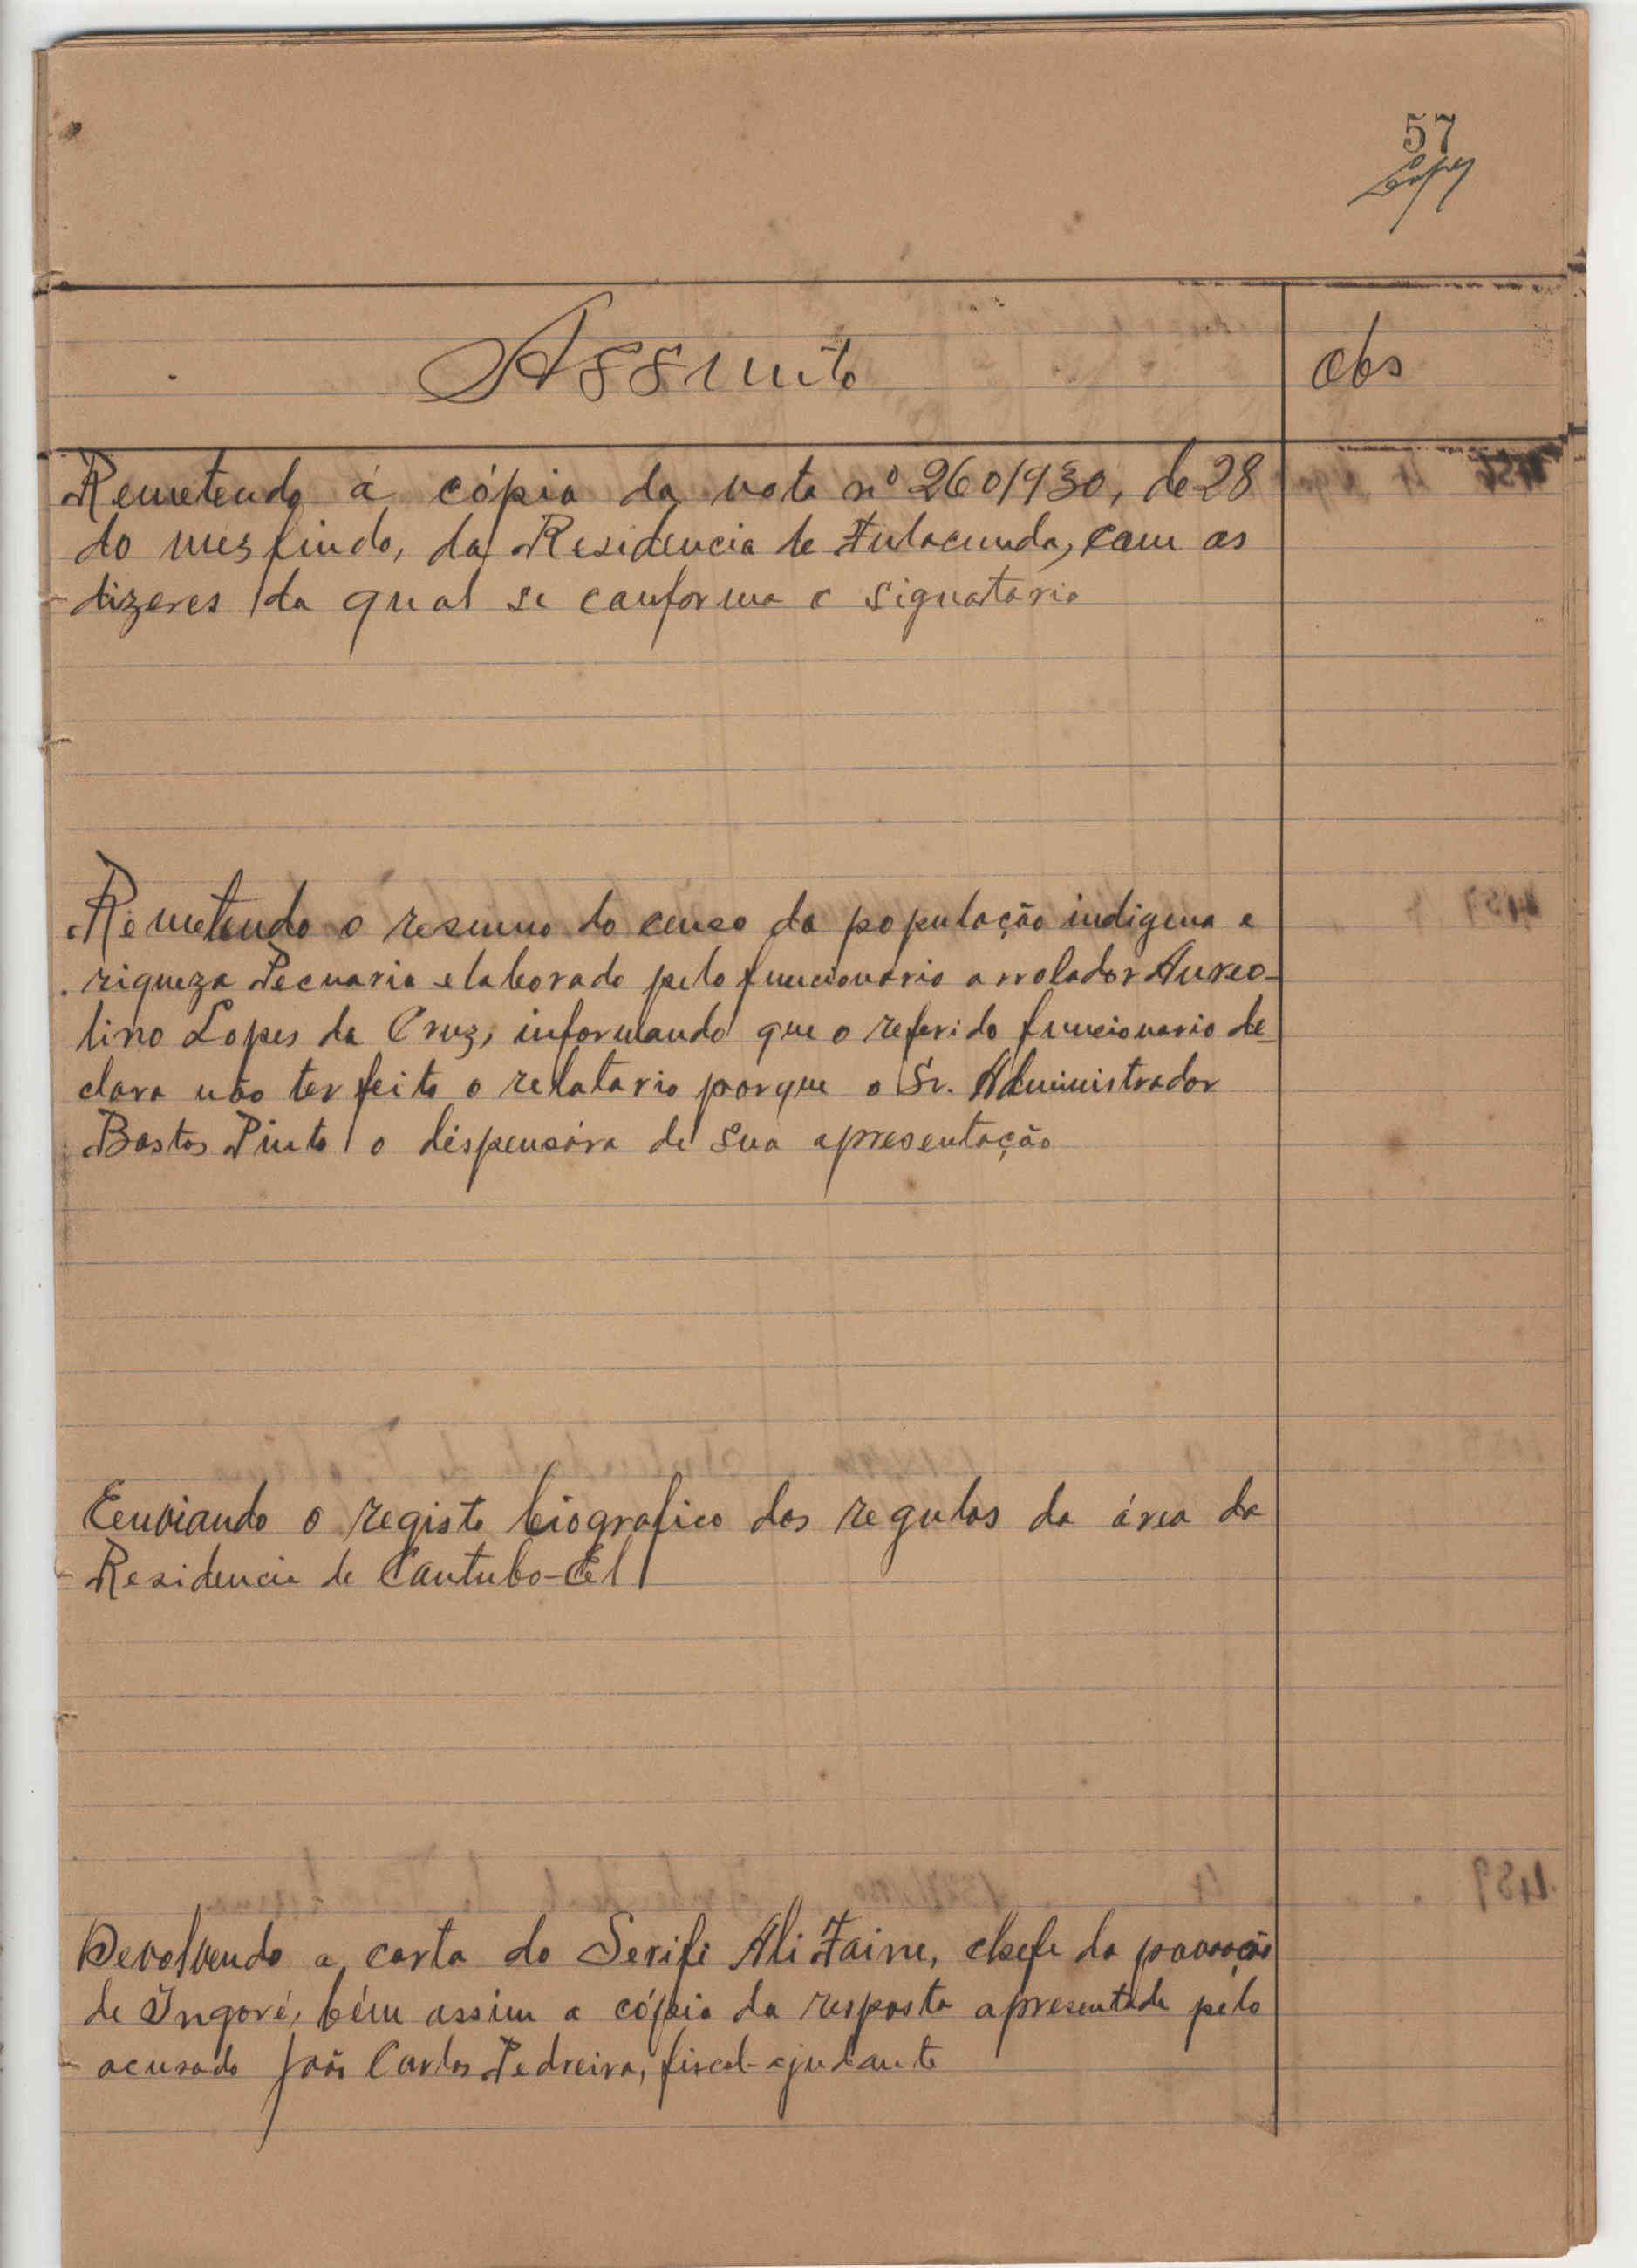 57
Lopes
Assunto
Obs
Remetendo á cópia da nota nº 260/930, de 28
do mes findo, da Residencia de Fulacunda, com as
dizeres da qual se conforma o signatario
Remetendo o resumo do censo da população indigena e
riqueza Pecuaria elaborado pelo funcionario arrolador Aureo-
lino Lopes da Cruz, informando que o referido funcionario de-
clara não ter feito o relatario porque o Sr. Administrador
Bastos Pinto o dispensára de sua apresentação
Eenviando o registo biografico dos regulos da área da
Residencia de Cantubo-El
Devolvendo a carta do Serife Ali Zaine, chefe da povoação
de Ingoré, bém assim a cópia da resposta apresentada pelo
acusado João Carlos Pedreira, fiscal-ajudante